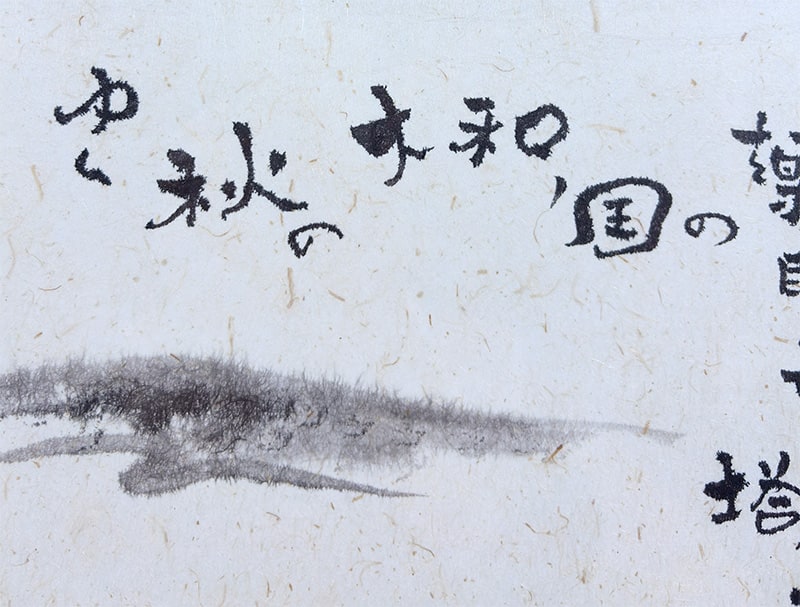 ゆく
秋の
大和
国の
薬
塔